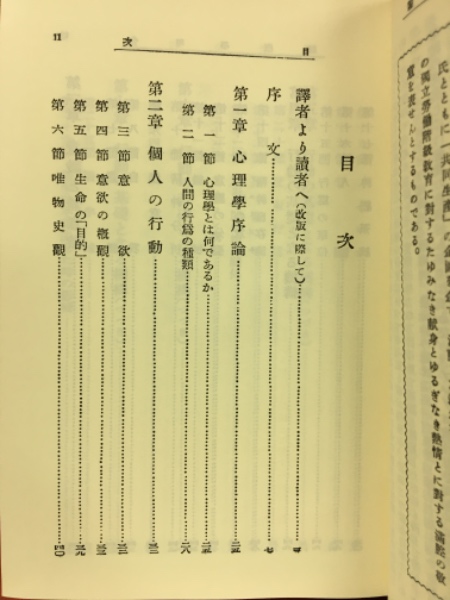 氏とともに「共同生産」の
の獨立勞働階級教育に對するたゆみなき獻身とゆるぎなき熱情とに對する滿腔の敬
意を表せんとするものである。
目次
11
目次
譯者より讀者へ(改版に際して)
序文 七
第一章 心理學序論
第一節 心理學とは何であるか
第二節 人間の行爲の種類 二八
第二章 個人の行動
第三節 意欲
第四節 意欲の概觀
第五節 生命の「目的」
第六節 唯物史觀 四〇